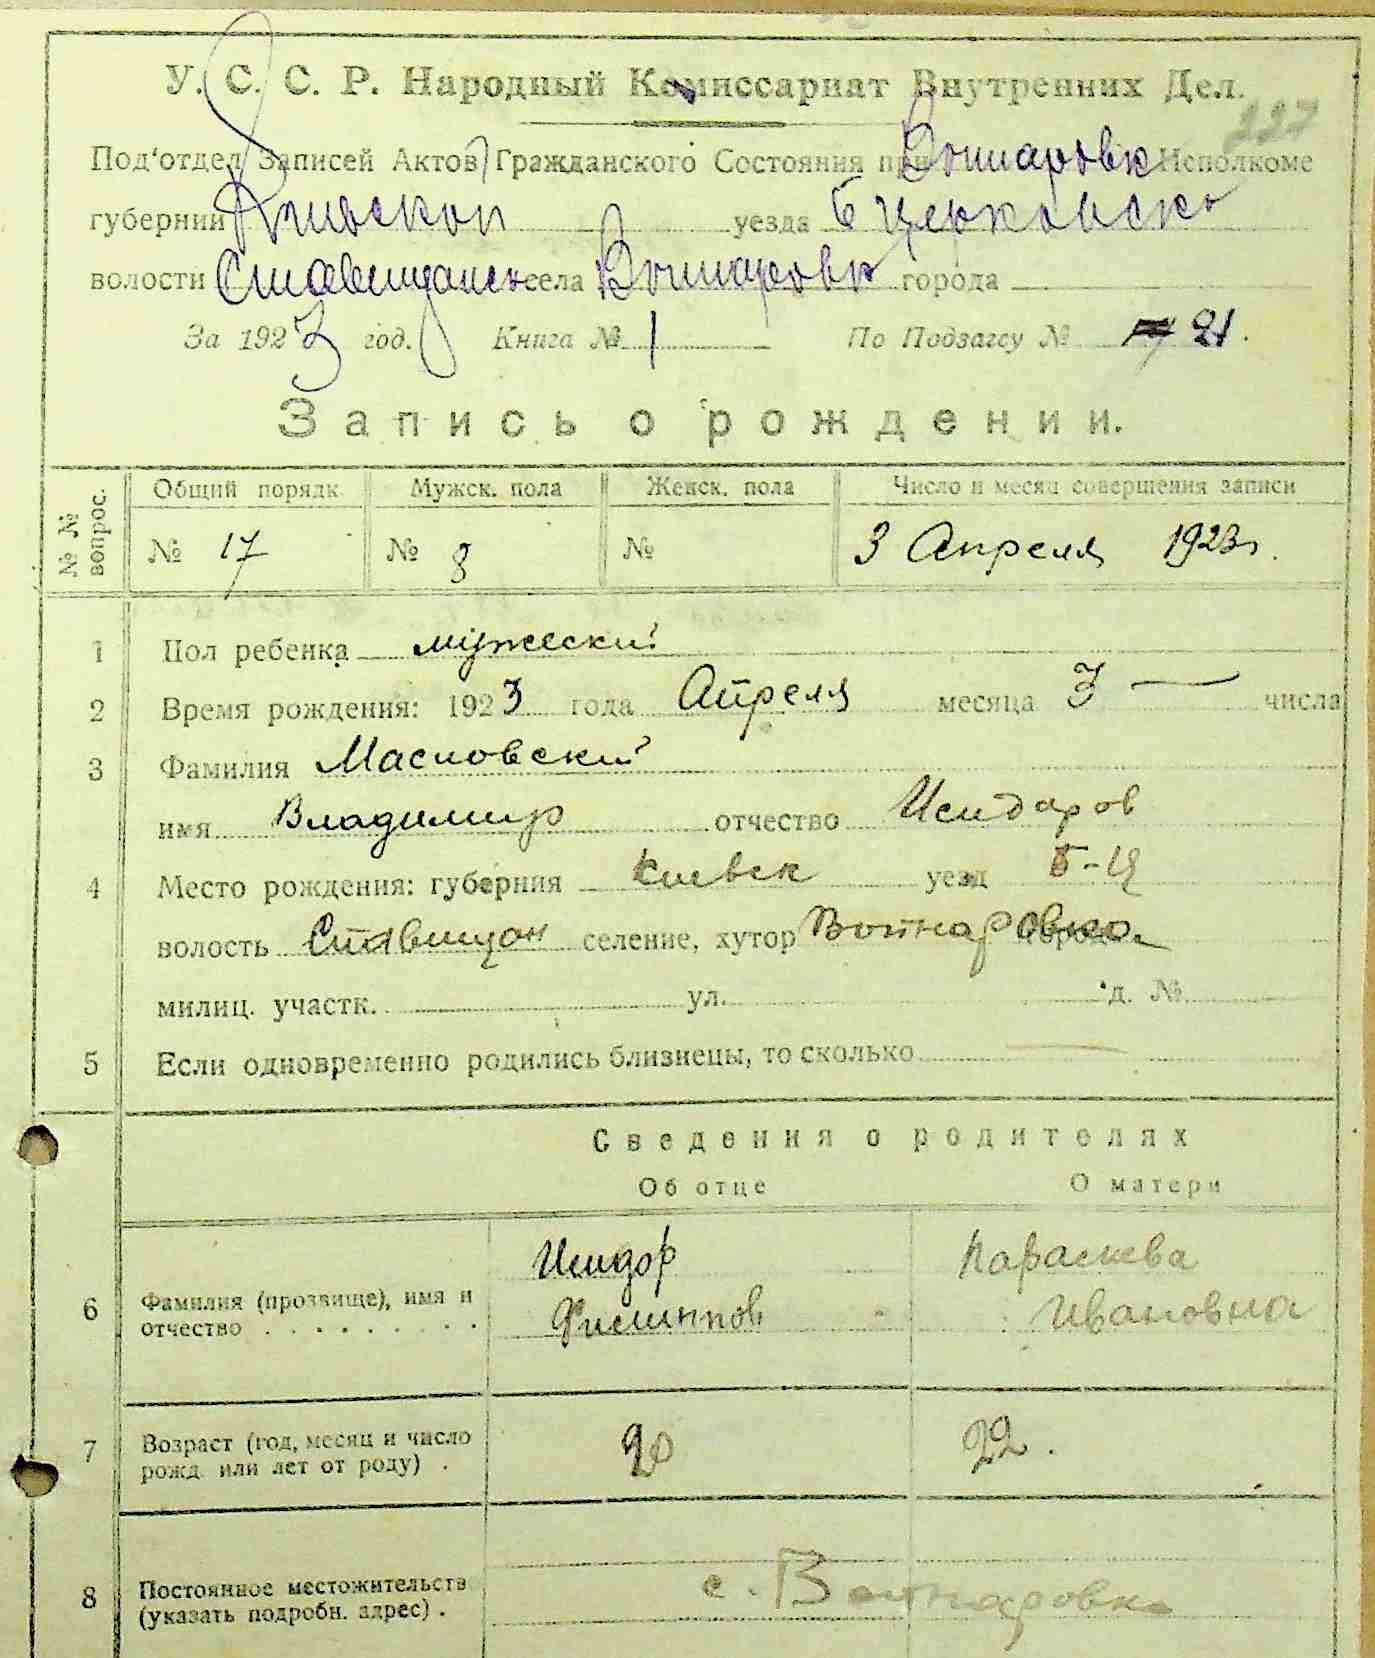 У. С. С. Р. Народный Комиссариат Внутренних Дел.
227
Под'отдел Записей Актов Гражданского Состояния при Исполкоме
губернии Киевской уезда Б Церковско
волости села города
За 1923 год. Книга № 1 По Подзагсу № 21.
Запись о рождении.
№ № вопрос. Общий порядк. Мужск. пола Женск. пола Число и месяц совершения записи
№ 17 № 8 № 3 Апреля 1923 г.
1 Пол ребенка мужеский
2 Время рождения: 1923 года Апреля месяца 3 — числа
3 Фамилия Масловский
имя Владимир отчество Исидоров
4 Место рождения: губерния Киевск уезд Б-Ц
волость Ставищан селение, хутор Войнаровка
милиц. участк. ул. д. №
5 Если одновременно родились близнецы, то сколько —
Сведения о родителях
Об отце О матери
6 Фамилия (прозвище), имя и Исидор Параскева
отчество . . . . . . . . . Филиппов Ивановна
7 Возраст (год, месяц и число 20 22.
рожд. или лет от роду) .
8 Постоянное местожительств с. Войнаровка
(указать подробн. адрес) .